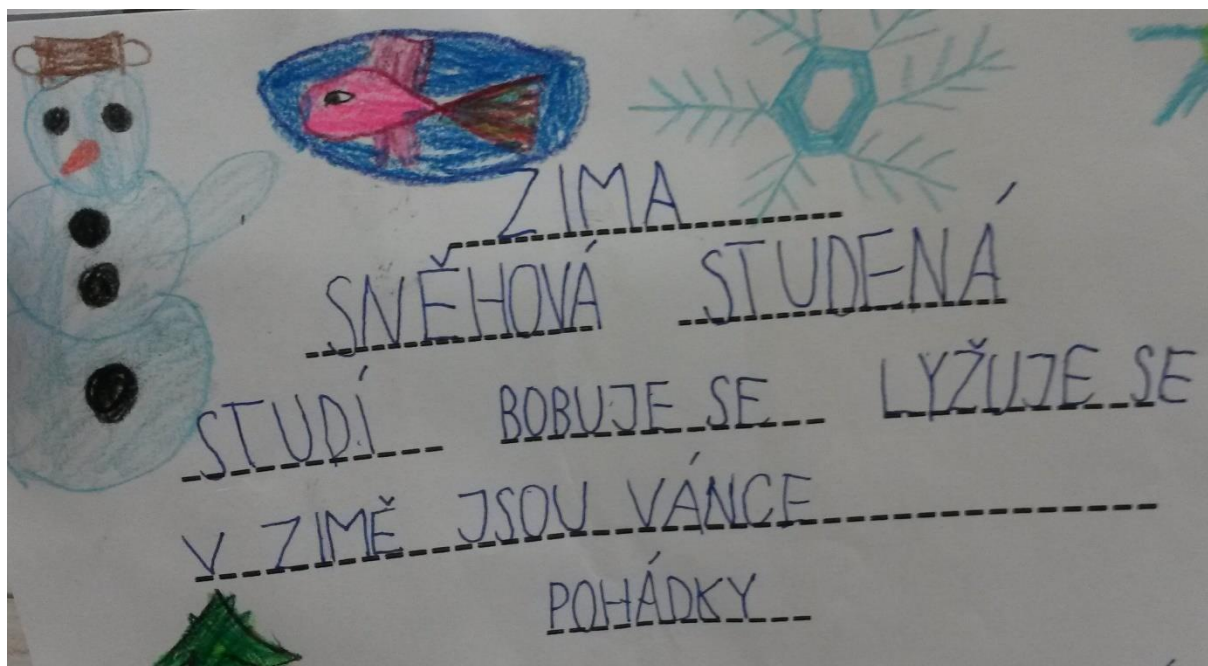 ZIMA
SNĚHOVÁ STUDENÁ
STUDÍ BOBUJE SE LYŽUJE SE
V ZIMĚ JSOU VÁNCE
POHÁDKY